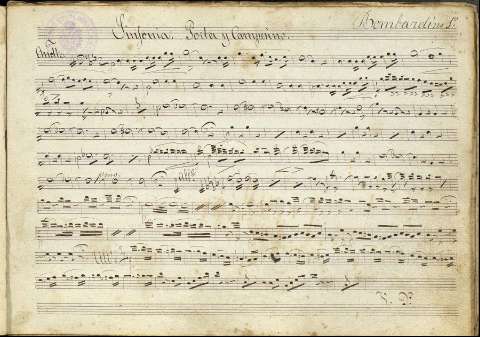 Sinfonía. Poeta y Campesino.
Bombardino 1º
Andte
Allº
V. P.